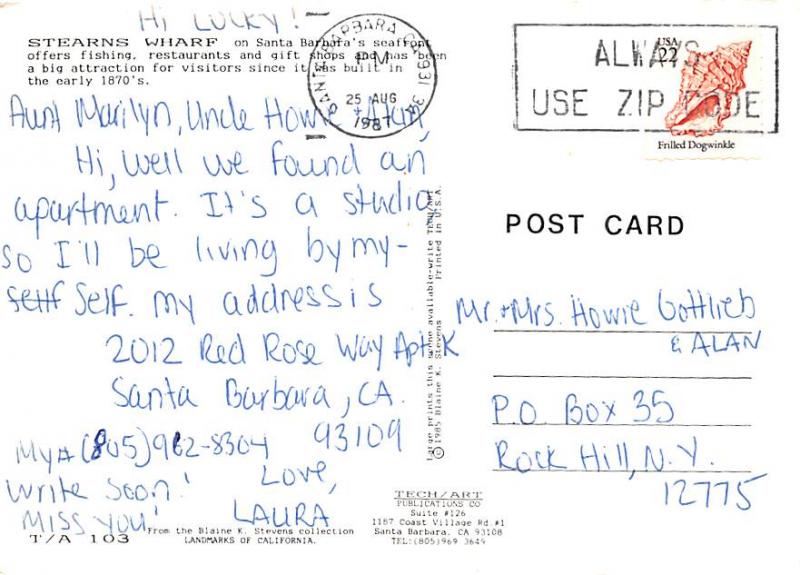 Hi LUCKY!
STEARNS WHARF on Santa Barbara's seafront
offers fishing, restaurants and gift shops and has been
a big attraction for visitors since it was built in
the early 1870's.
Aunt Marilyn, Uncle Howie +
Hi, well we found an
apartment. It's a studio
so I'll be living by my-
self. my address is
2012 Red Rose Way Apt K
Santa Barbara, CA.
93109
My # (805) 962-8304
Write soon!
Miss you!
Love,
LAURA
T/A 103
From the Blaine K. Stevens collection
LANDMARKS OF CALIFORNIA.
Large prints this scene available-write TECH/ART
© 1985 Blaine K. Stevens Printed in U.S.A.
TECH/ART
PUBLICATIONS CO
Suite #126
1187 Coast Village Rd.#1
Santa Barbara, CA 93108
TEL:(805)969 3649
SANTA BARBARA CA 931
PM
25 AUG
1987
ALWAYS
USE ZIP CODE
USA
22
Frilled Dogwinkle
POST CARD
Mr. + Mrs. Howie Gottlieb
& ALAN
P.O. Box 35
Rock Hill, N.Y.
12775